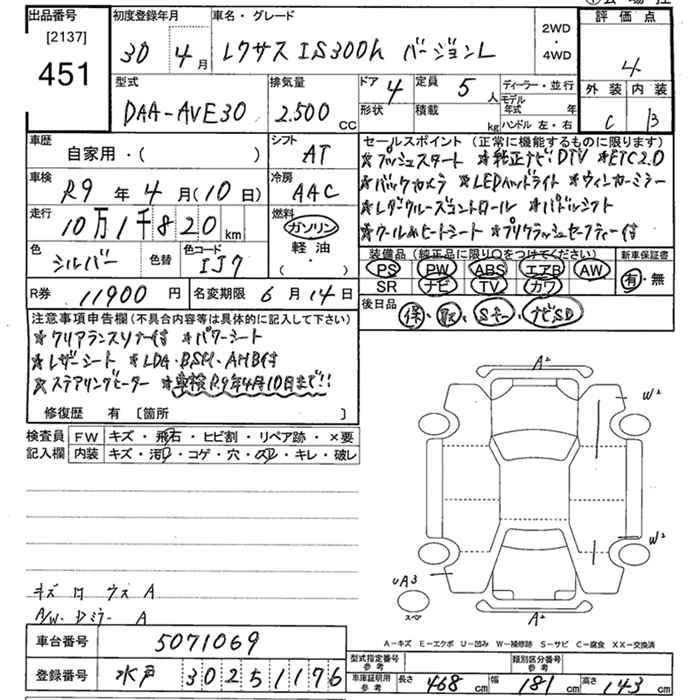 出品番号
[2137]
451
初度登録年月
30年4月
車名・グレード
レクサス IS300h バージョンL
2WD
・
4WD
評価点
4
外装 内装
C B
型式
DAA-AVE30
排気量
2.500 CC
ドア 4
定員 5 人
形状
積載 kg
ディーラー・並行
モデル年式 年
ハンドル 左・右
車歴
自家用・( )
シフト
AT
車検
R9年4月(10日)
冷房
AAC
走行
10万1千820km
燃料
ガソリン
軽油
( ・ )
色
シルバー
色替
色コード
1J7
セールスポイント (正常に機能するものに限ります)
*プッシュスタート *純正ナビDTV *ETC2.0
*バックカメラ *LEDヘッドライト *ウィンカーミラー
*レダクルーズコントロール *パドルシフト
*クール&ヒートシート *プリクラッシュセーフティー付
装備品 (純正品に限り○をつけてください)
PS PW ABS エアB AW
SR ナビ TV カワ
新車保証書
有・無
R券
11900円
名変期限 6月14日
後日品
保・取・Sキー・ナビSD
注意事項申告欄 (不具合内容等は具体的に記入して下さい)
*クリアランスソナー付 *パワーシート
*レザーシート *LDA・BSM・AHB付
*ステアリングヒーター *車検R9年4月10日まで!!
修復歴 有 [箇所 ]
検査員記入欄
FW キズ・飛石・ヒビ割・リペア跡・×要
内装 キズ・汚レ・コゲ・穴・スレ・キレ・破レ
A²
W²
W²
A²
UA3
スペア
A/W・ドミラー A
A-キズ E-エクボ U-凹み W-補修跡 S-サビ C-腐食 XX-交換済
車台番号
5071069
登録番号
水戸 302 51176
型式指定番号 参考
類別区分番号 参考
車庫証明用 参考
長さ 468 cm 幅 181 cm 高さ 143 cm